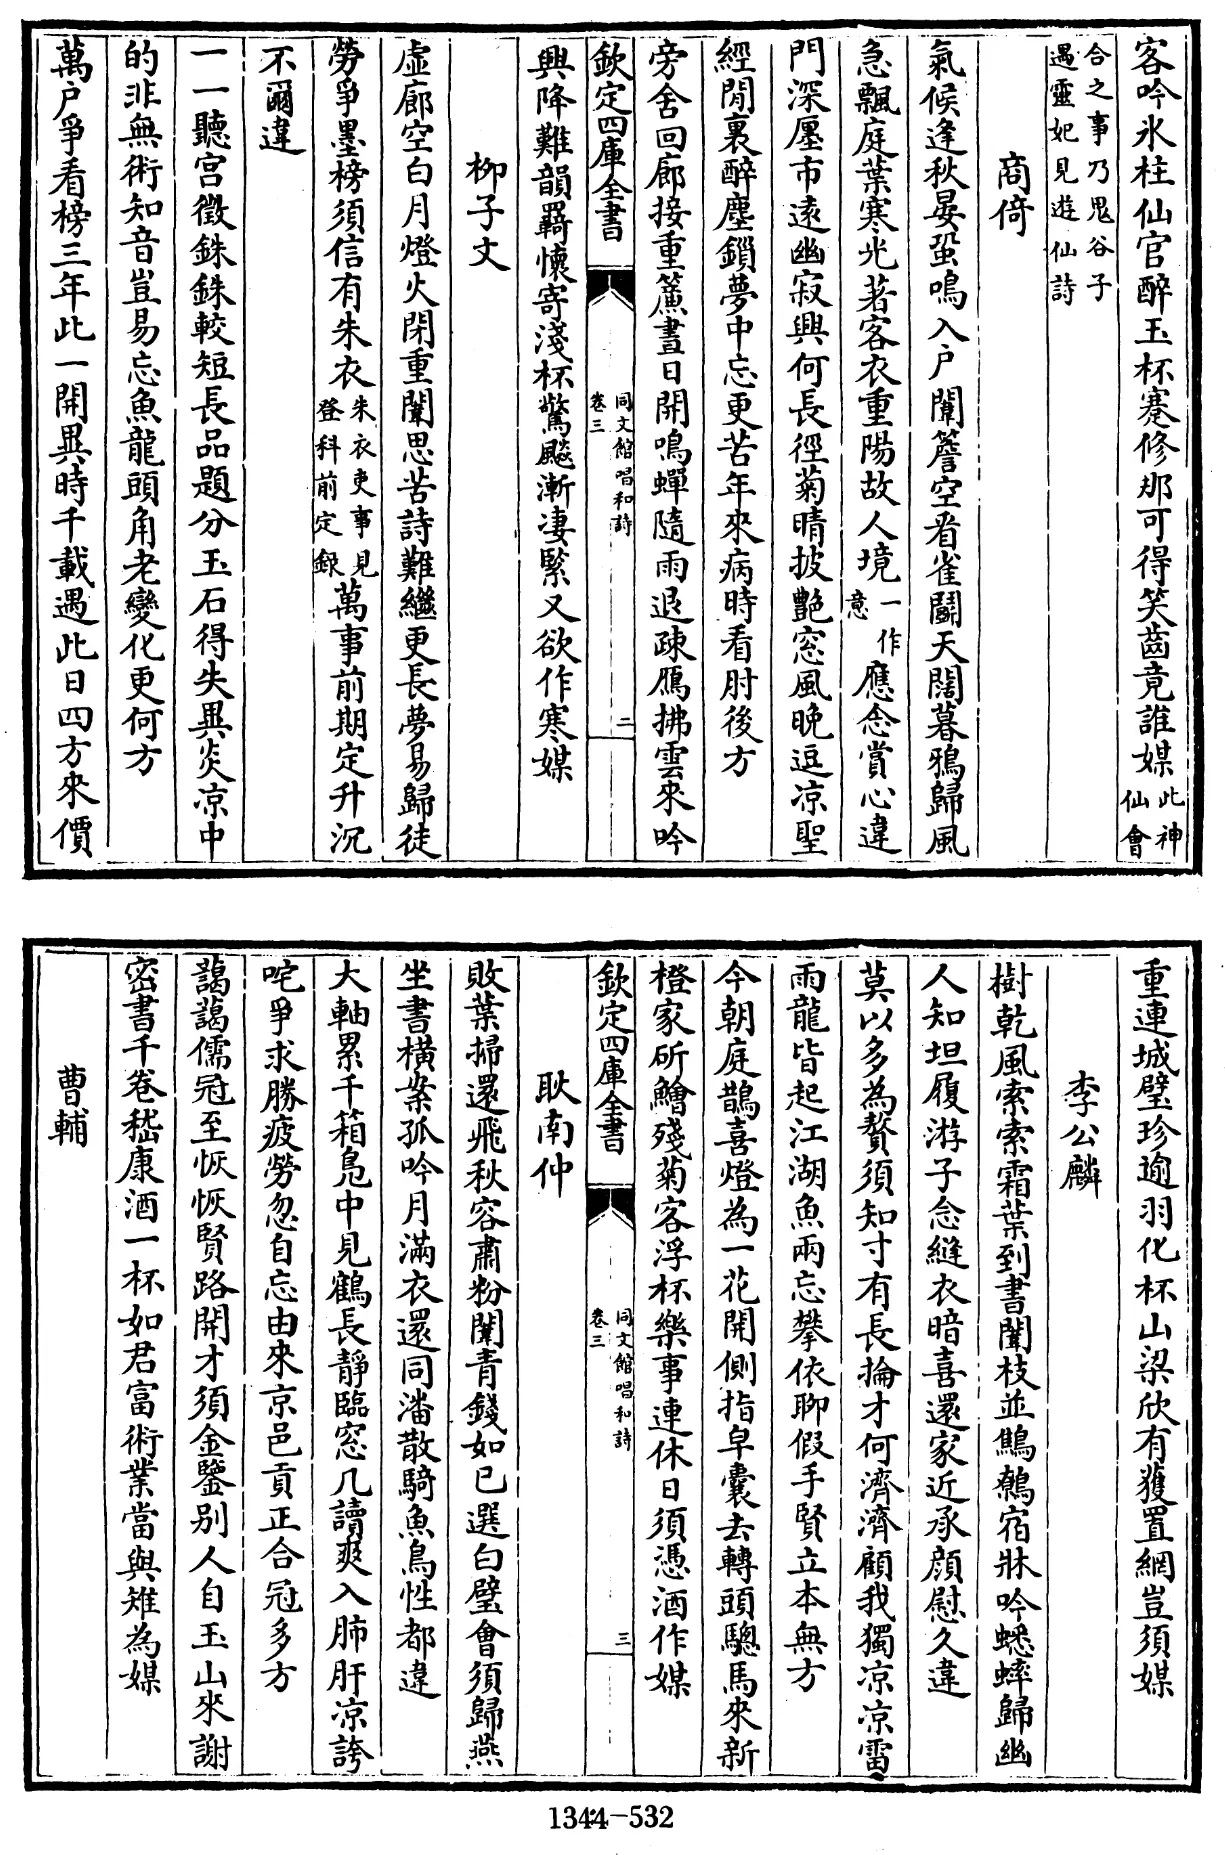 客吟氷柱仙官醉玉杯蹇修那可得笑齒竟誰媒此神仙會
合之事乃鬼谷子遇靈妃見遊仙詩
商倚
氣候逢秋晏蛩鳴入户闈簷空看雀鬬天闊暮鴉歸風
急飄庭葉寒光著客衣重陽故人境一作意應念賞心違
門深廛市遠幽寂興何長徑菊晴披艶窓風晚逗凉聖
經閒裏醉塵鎖夢中忘更苦年來病時看肘後方
旁舍回廊接重簾晝日開鳴蟬隨雨退疎鴈拂雲來吟
欽定四庫全書
同文館唱和詩
卷三
二
興降難韻羇懷寄淺杯驚飈漸凄緊又欲作寒媒
柳子文
虚廊空白月燈火閉重闈思苦詩難繼更長夢易歸徒
勞爭墨榜須信有朱衣朱衣吏事見登科前定録萬事前期定升沉
不爾違
一一聽宫徵銖銖較短長品題分玉石得失異炎凉中
的非無術知音豈易忘魚龍頭角老變化更何方
萬户爭看榜三年此一開異時千載遇此日四方來價
重連城璧珍逾羽化杯山梁欣有獲罝網豈須媒
李公麟
樹乾風索索霜葉到書闈枝並鷦鷯宿牀吟蟋蟀歸幽
人知坦履游子念縫衣暗喜還家近承顔慰久違
莫以多為贅須知寸有長掄才何濟濟顧我獨凉凉雷
雨龍皆起江湖魚兩忘攀依聊假手賢立本無方
今朝庭鵲喜燈為一花開側指皁囊去轉頭驄馬來新
橙家斫鱠殘菊客浮杯樂事連休日須憑酒作媒
欽定四庫全書
同文館唱和詩
卷三
三
耿南仲
敗葉掃還飛秋容肅粉闈青錢如已選白璧會須歸燕
坐書横案孤吟月滿衣還同潘散騎魚鳥性都違
大軸累千箱鳬中見鶴長靜臨窓几讀爽入肺肝凉誇
咤爭求勝疲勞忽自忘由來京邑貢正合冠多方
藹藹儒冠至恢恢賢路開才須金鑒别人自玉山來謝
密書千卷嵇康酒一杯如君富術業當與雉為媒
曹輔
1344-532